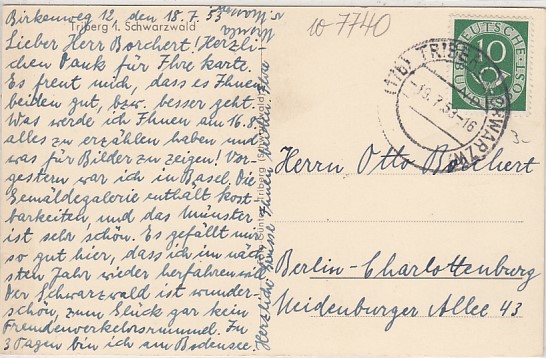 Birkenweg 12, den 18.7.53
Triberg i. Schwarzwald
Lieber Herr Borchert! Herzli-
chen Dank für Ihre Karte.
Es freut mich, dass es Ihnen
beiden gut, bzw. besser geht.
Was werde ich Ihnen am 16.8.
alles zu erzählen haben und
was für Bilder zu zeigen! Vor-
gestern war ich in Basel. Die
Gemäldegalerie enthält Kost-
barkeiten und das Münster
ist sehr schön. Es gefällt mir
so gut hier, dass ich im näch-
sten Jahr wieder herfahren will.
Der Schwarzwald ist wunder-
schön, zum Glück gar kein
Fremdenverkehrsrummel. In
3 Tagen bin ich am Bodensee.
Herzliche Grüsse Ihnen beiden Ihre
Triberg (Schwarzwald)
10 7740
DEUTSCHE BUNDESPOST
10
(17b) TRIBERG (SCHWARZW)
-19.7.53-16
3-
Herrn Otto Borchert
Berlin-Charlottenburg
Neidenburger Allee 43